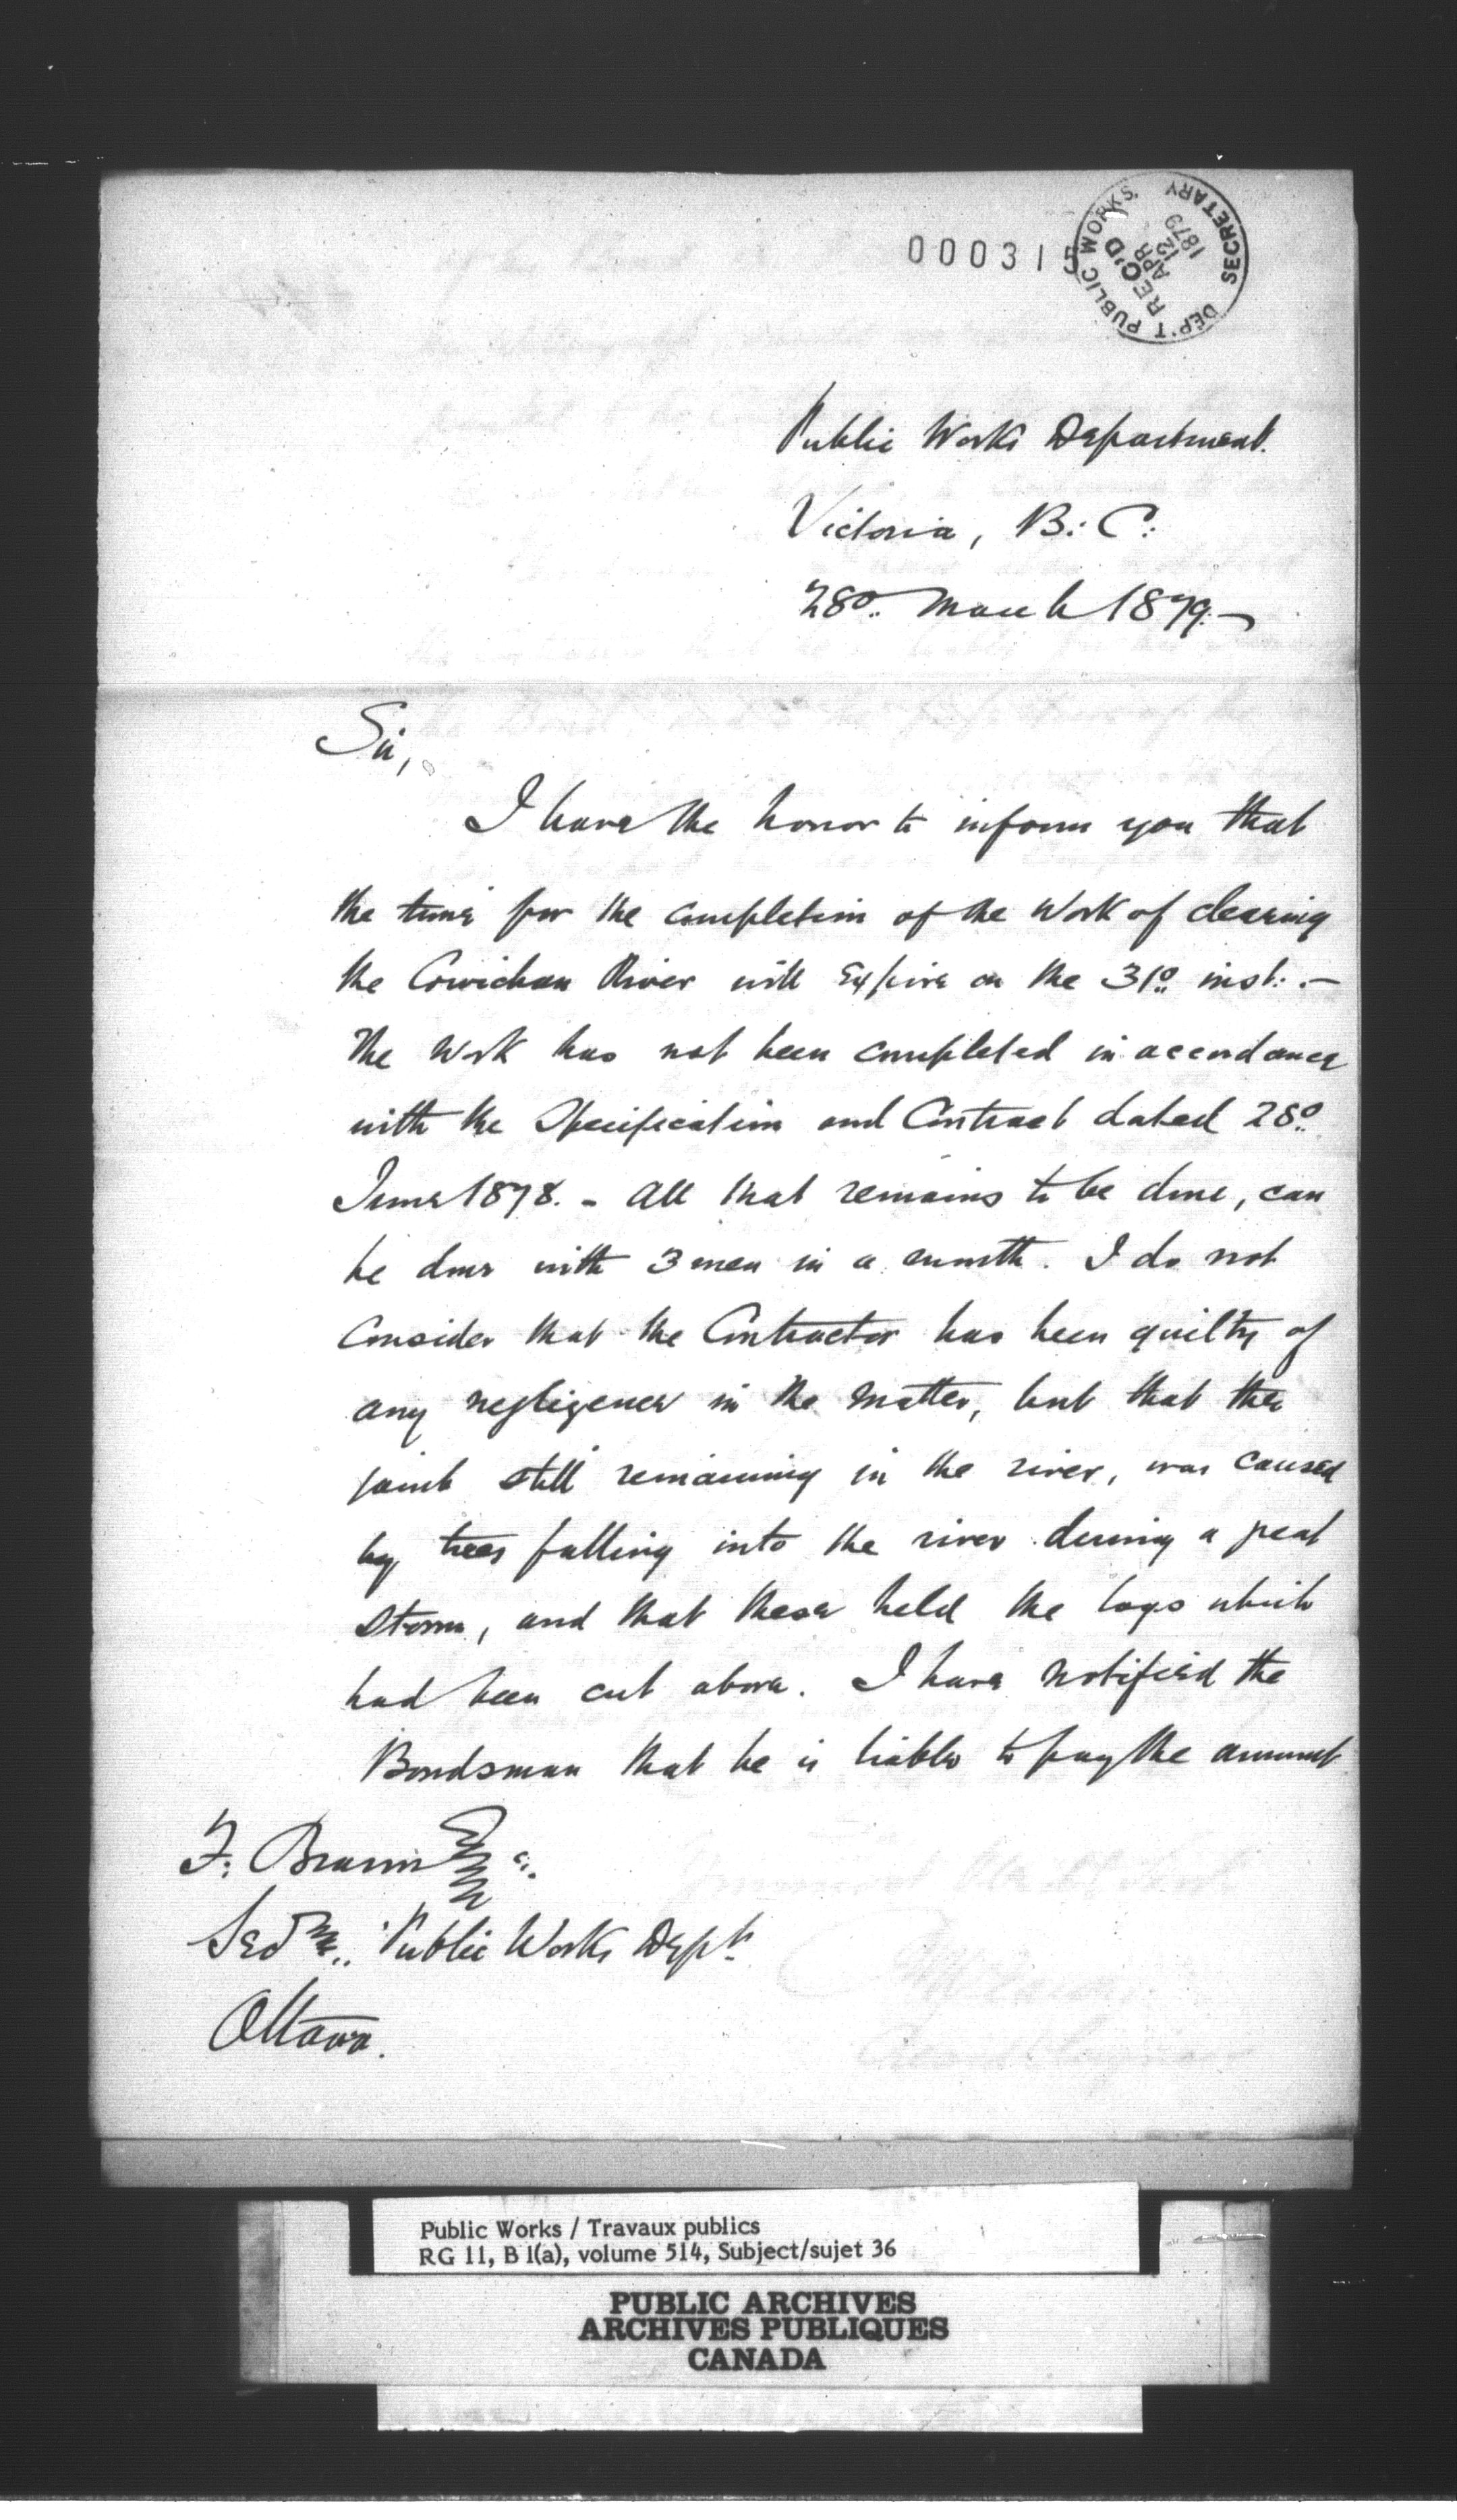 000315
DEP'T PUBLIC WORKS. SECRETARY
REC'D
APR
12
1879
Public Works Department.
Victoria, B: C:
28º March 1879.—
Sir,
I have the honor to inform you that
the time for the completion of the work of clearing
the Cowichan River will expire on the 31º inst: . —
The work has not been completed in accordance
with the Specification and Contract dated 28º
June 1878. - All that remains to be done, can
be done with 3 men in a month. I do not
consider that the Contractor has been guilty of
any negligence in the matter, but that the
jamb still remaining in the river, was caused
by trees falling into the river during a great
storm, and that these held the logs which
had been cut above. I have notified the
Bondsman that he is liable to pay the amount
F: Braun Esq.
Public Works Dept.
Ottawa.
Public Works / Travaux publics
RG 11, B 1(a), volume 514, Subject/sujet 36
PUBLIC ARCHIVES
ARCHIVES PUBLIQUES
CANADA